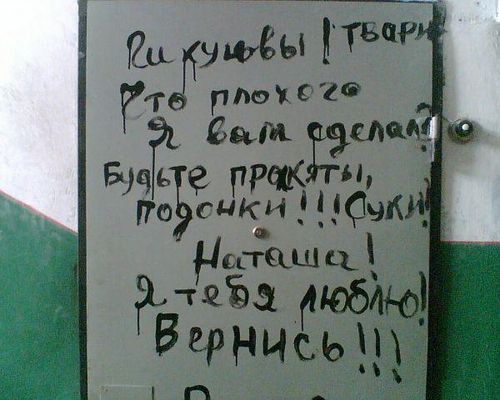 твари!
Что плохого
Я вам сделал?
Будьте прокляты,
подонки!!! Суки!
Наташа!
Я тебя люблю!
Вернись!!!